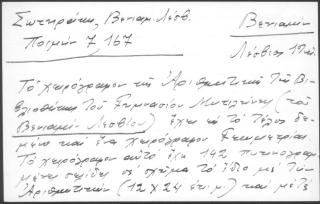 Σωτηράκη, Βενιαμ. Λέσβ.
Ποιμήν 7, 167
Βενιαμίν
Λέσβιος
Τὸ χειρόγραφον τῆς Ἀριθμητικῆς τῆς Βι-
βλιοθήκης τοῦ Γυμνασίου Μυτιλήνης (τοῦ
Βενιαμὶν Λεσβίου) ἔχει εἰς τὸ τέλος δε-
μένο καὶ ἕνα χειρόγραφον Γεωμετρίας
Τὸ χειρόγραφον αὐτὸ ἔχει 142 πυκνογραμ
μένας σελίδας σὲ σχῆμα τὸ ἴδιο μὲ τῆς
Ἀριθμητικῆς (12 Χ 24 ) καὶ μὲ